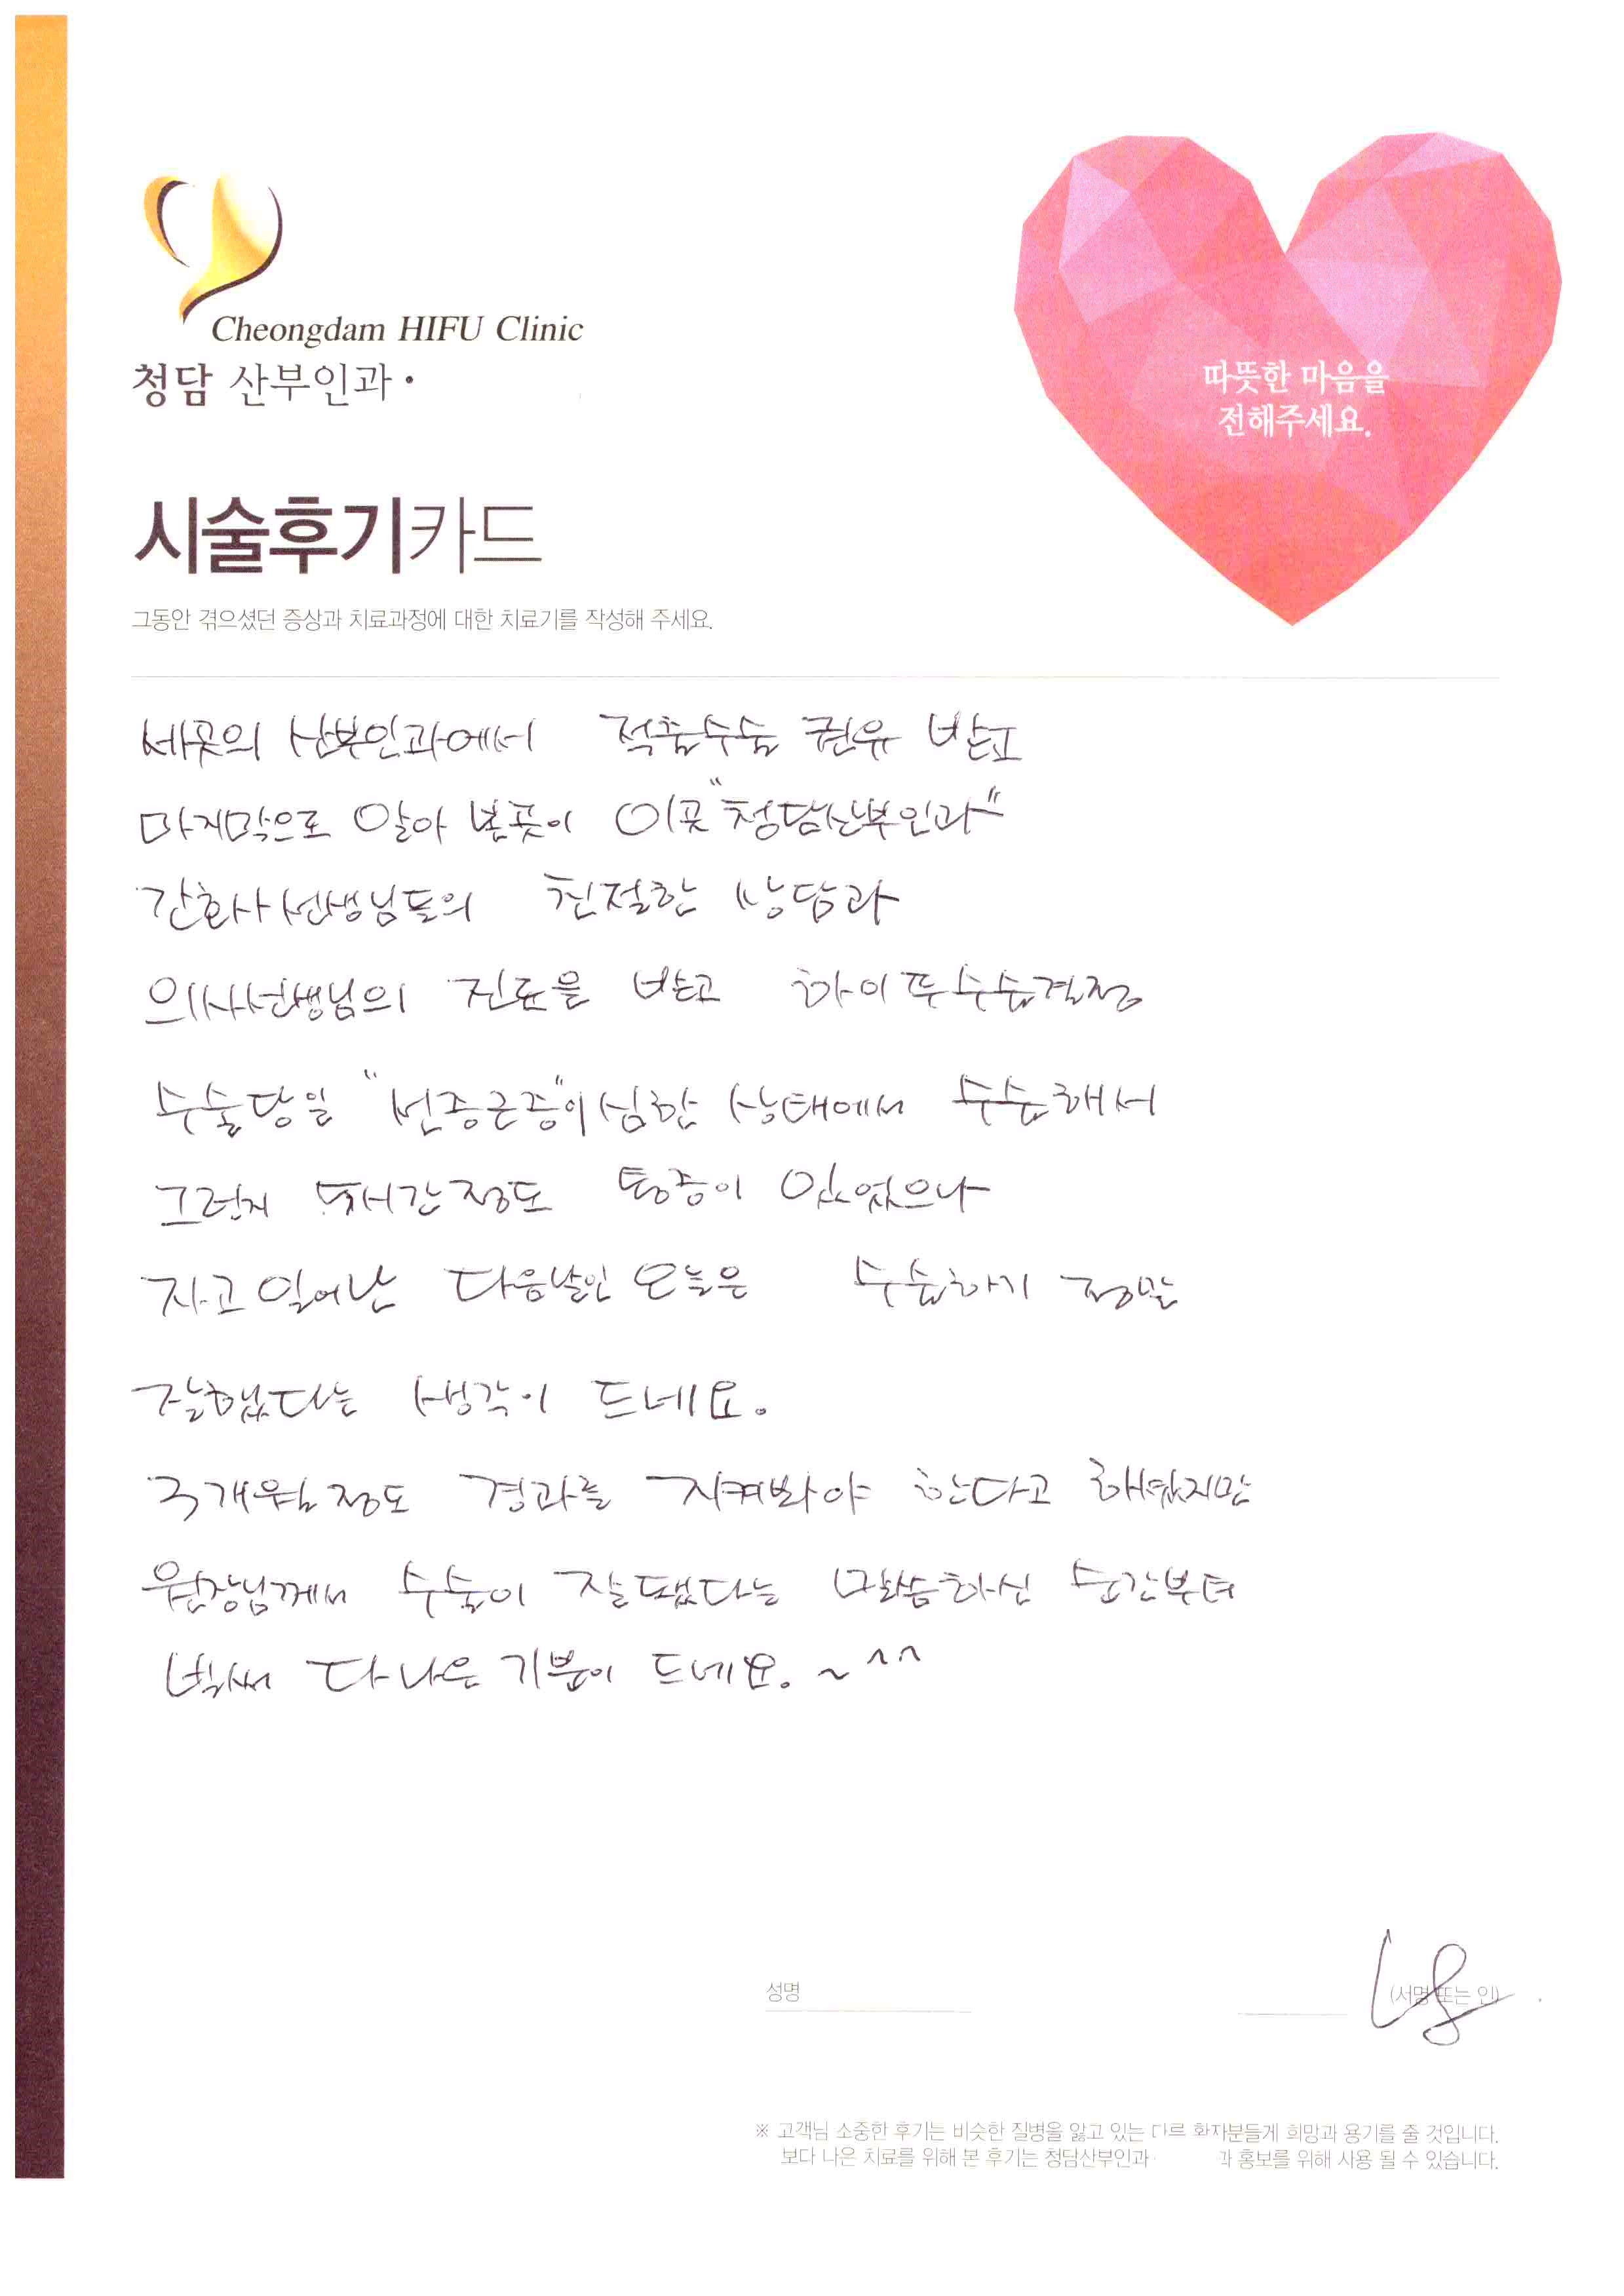 Cheongdam HIFU Clinic
청담 산부인과
따뜻한 마음을
전해주세요.
시술후기카드
그동안 겪으셨던 증상과 치료과정에 대한 치료기를 작성해 주세요.
세곳의 산부인과에서 적출수술 권유 받고
마지막으로 알아 본곳이 이곳 "청담산부인과"
간호사선생님들의 친절한 상담과
의사선생님의 진료을 받고 하이푸수술결정
수술당일 "선증근증"이 심한 상태에서 수술해서
그런지 두시간정도 통증이 있었으나
자고 일어난 다음날인 오늘은 수술하기 정말
잘했다는 생각이 드네요.
3개월정도 경과를 지켜봐야 한다고 하셨지만
원장님께서 수술이 잘됐다는 말씀하신 순간부터
벌써 다 나은 기분이 드네요. ~ ^^
성명
(서명 또는 인)
※ 고객님 소중한 후기는 비슷한 질병을 앓고 있는 다른 환자분들게 희망과 용기를 줄 것입니다.
보다 나은 치료를 위해 본 후기는 청담산부인과 과 홍보를 위해 사용 될 수 있습니다.